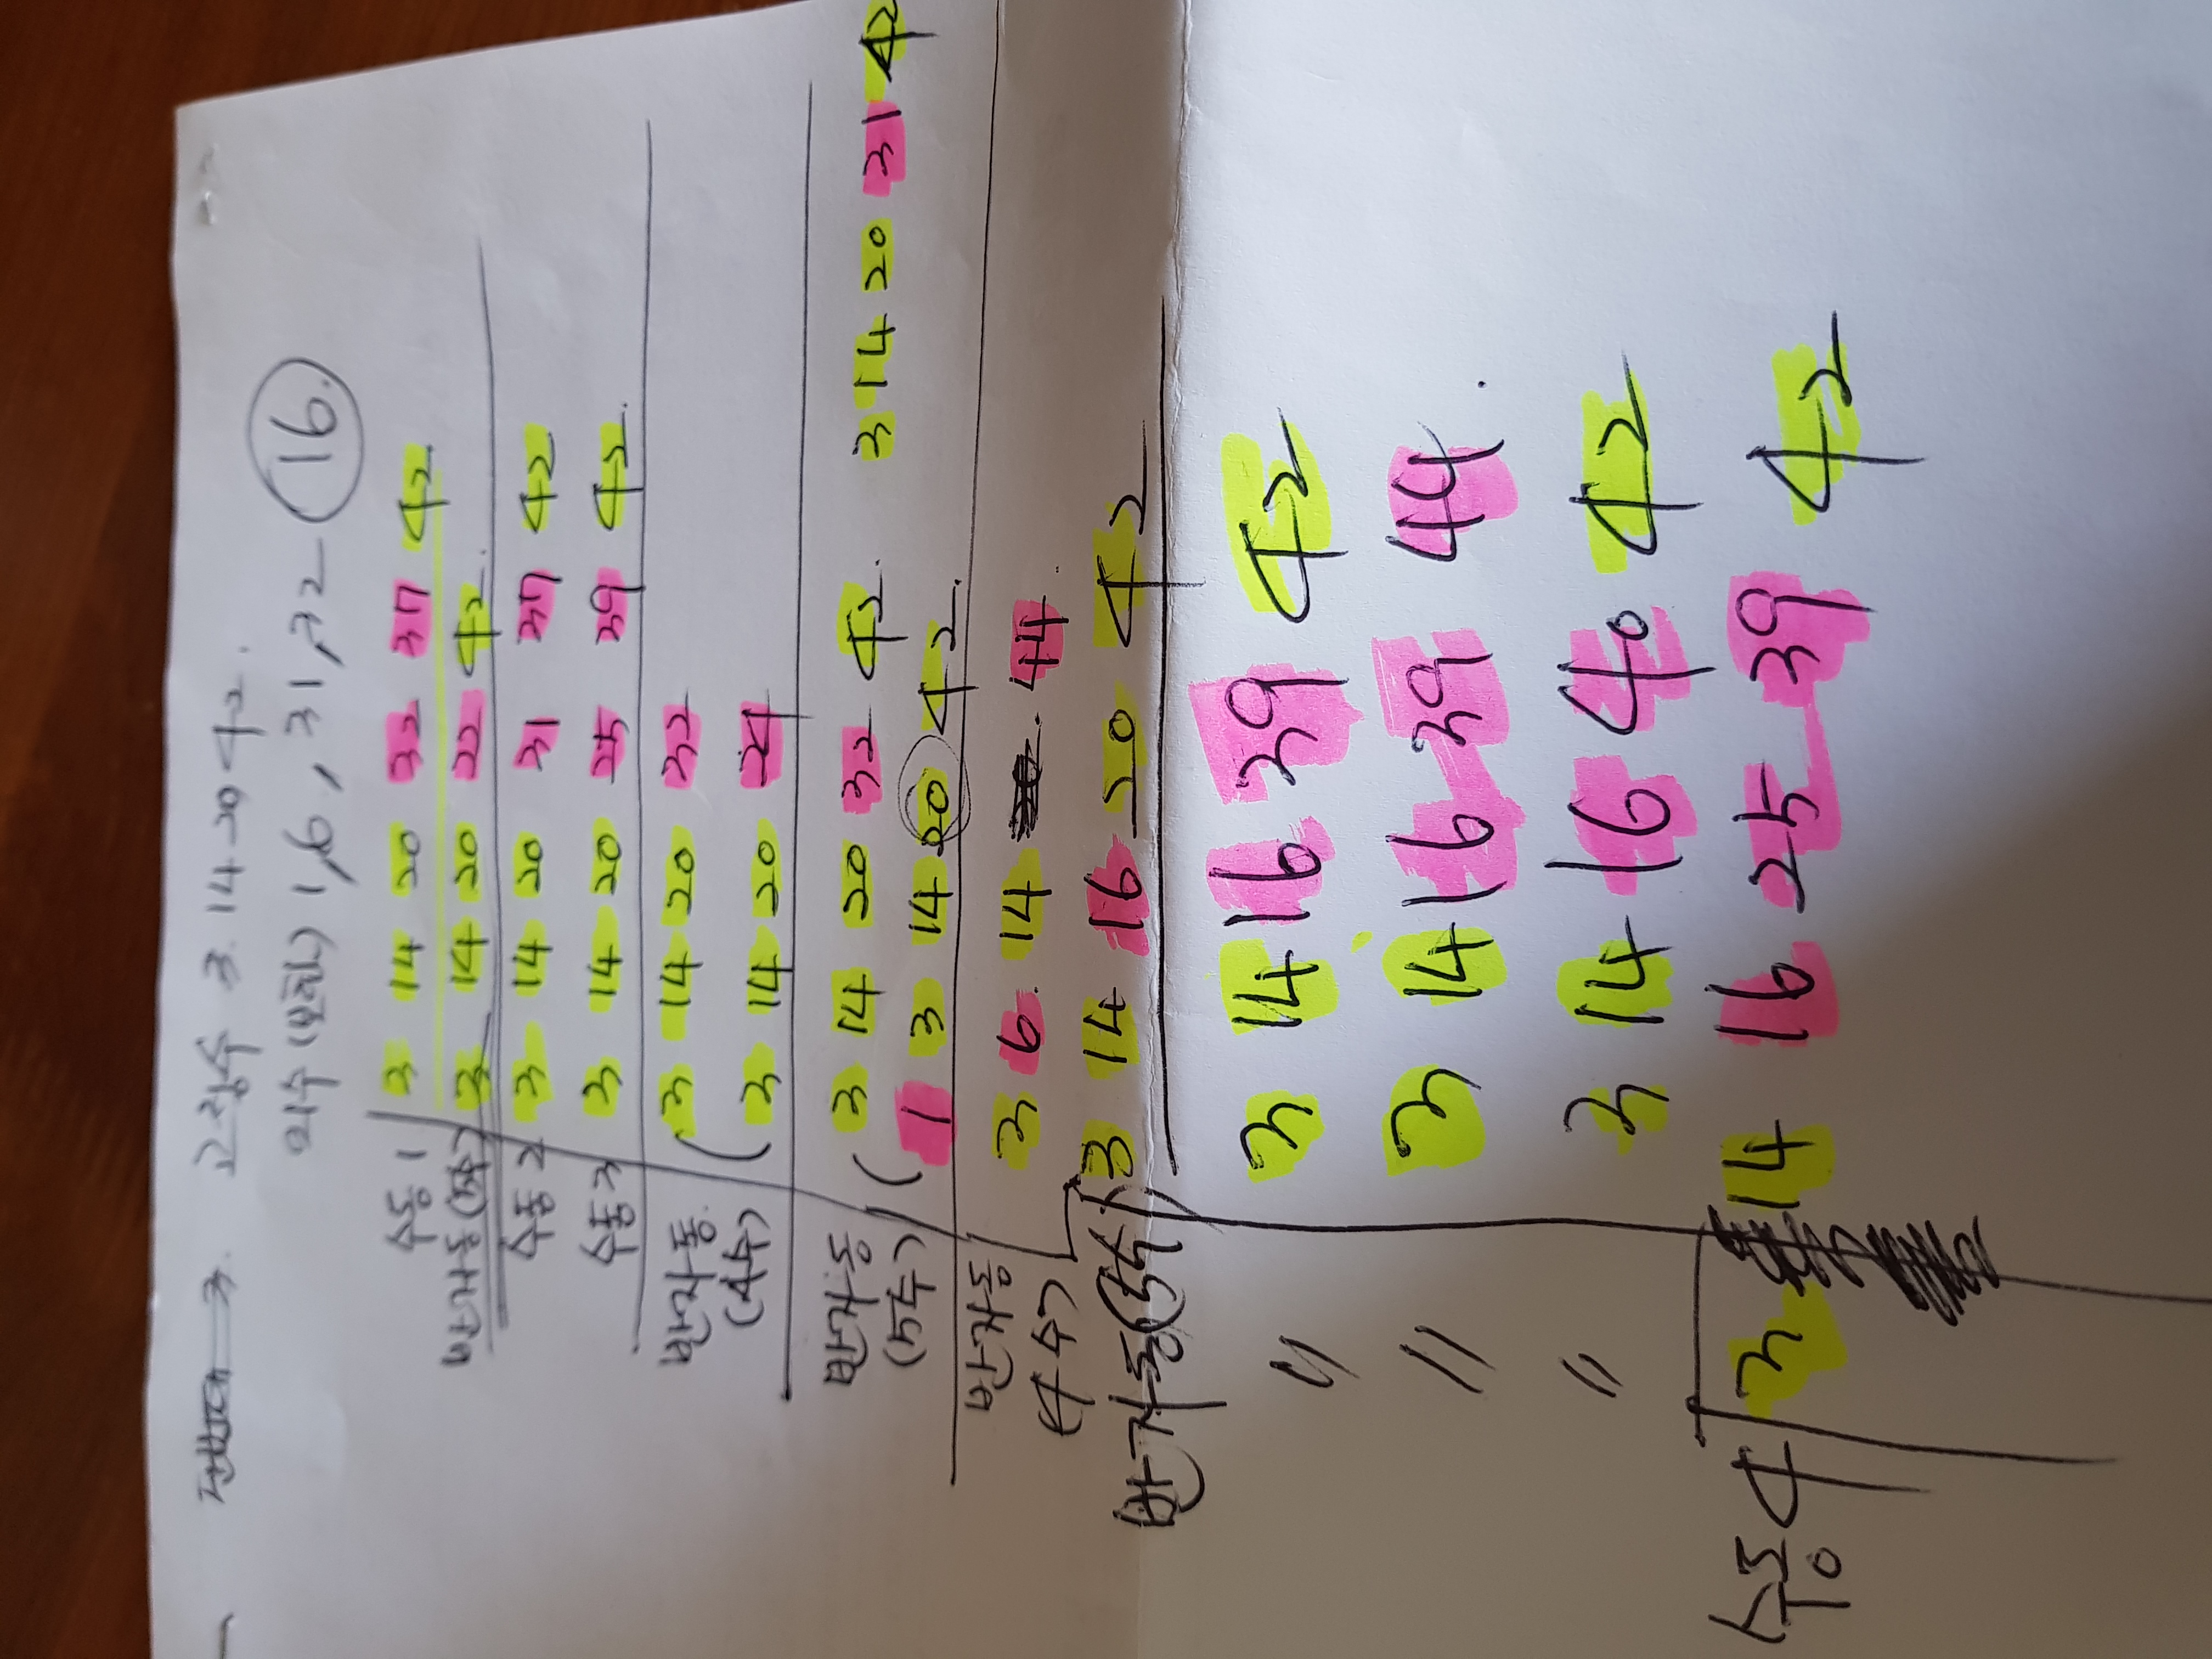 고정수 3. 14 20 42.
외수 (1, 6, 31, 32 16.
수동 1 3 14 20 32 37 42
반자동 3 14 20 22 42.
수동 2 3 14 20 31 37 42
수동 3 14 20 25 39 42.
반자동 3 14 20 32
(4수) (3 14 20 24
반자동 3 14 20 32 42. 3 14 20 31 42
(5수) (1 3 14 20 42.
반자동 3 6. 14 44.
(4수)
반자동(5수) 3 14 16 20 42
〃 3 14 16 39 42
〃 3 14 16 39 44.
〃 3 14 16 40 42
수동 4 3 14 16 25 39 42